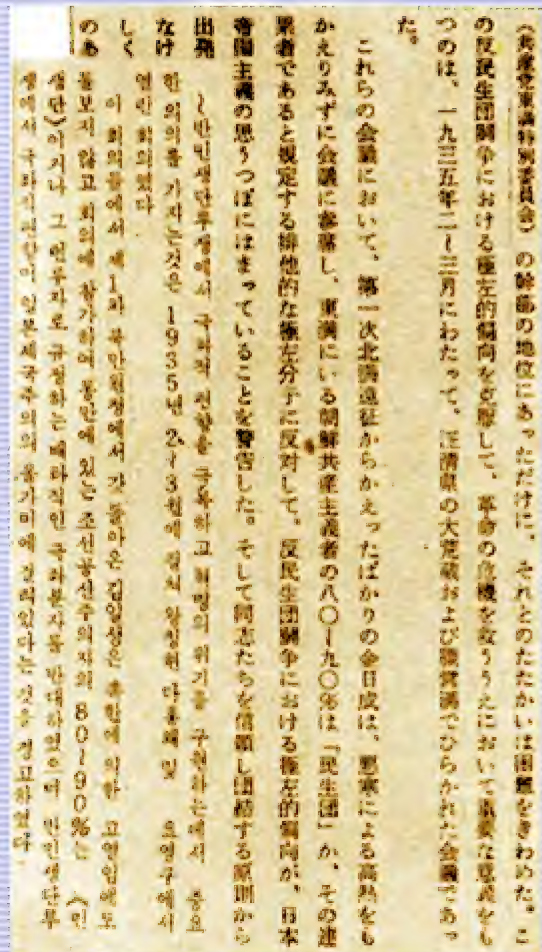 （共産党東満特別委員会）の幹部の地位にあっただけに、それとのたたかいは困難をきわめた。こ
の反民生団闘争における極左的偏向を克服して、革命の危機を救ううえにおいて重要な意義をも
つのは、一九三五年二〜三月にわたって、汪清県の大荒崴および腰営溝でひらかれた会議であっ
た。
これらの会議において、第一次北満遠征からかえったばかりの金日成は、悪寒による高熱をも
かえりみずに会議に参席し、東満にいる朝鮮共産主義者の八〇〜九〇％は「民生団」か、その連
累者であると規定する排他的な極左分子に反対して、反民生団闘争における極左的偏向が、日本
帝国主義の思うつぼにはまっていることを警告した。そして同志たちを信頼し団結する原則から
出発
なけ
しく
のあ
반민생단투쟁에서 극좌적 편향을 극복하고 혁명의 위기를 구원하는데서 중요
한 의의를 가지는것은 1935년 2~3월에 걸쳐 왕청현 다홍왜 및 요영구에서
열린 회의였다
이 회의들에서 제1차 북만원정에서 갓 돌아온 김일성은 오한에 의한 고열임에도
불보지 않고 회의에 참가하여 동만에 있는 조선공산주의자의 80~90%는 《민
생단》이거나 그 연루자로 규정하는 배타적인 극좌분자를 반대하였으며 반민생단투
쟁에서 극좌적편향이 일본제국주의의 올가미에 걸려있다는것을 경고하였다